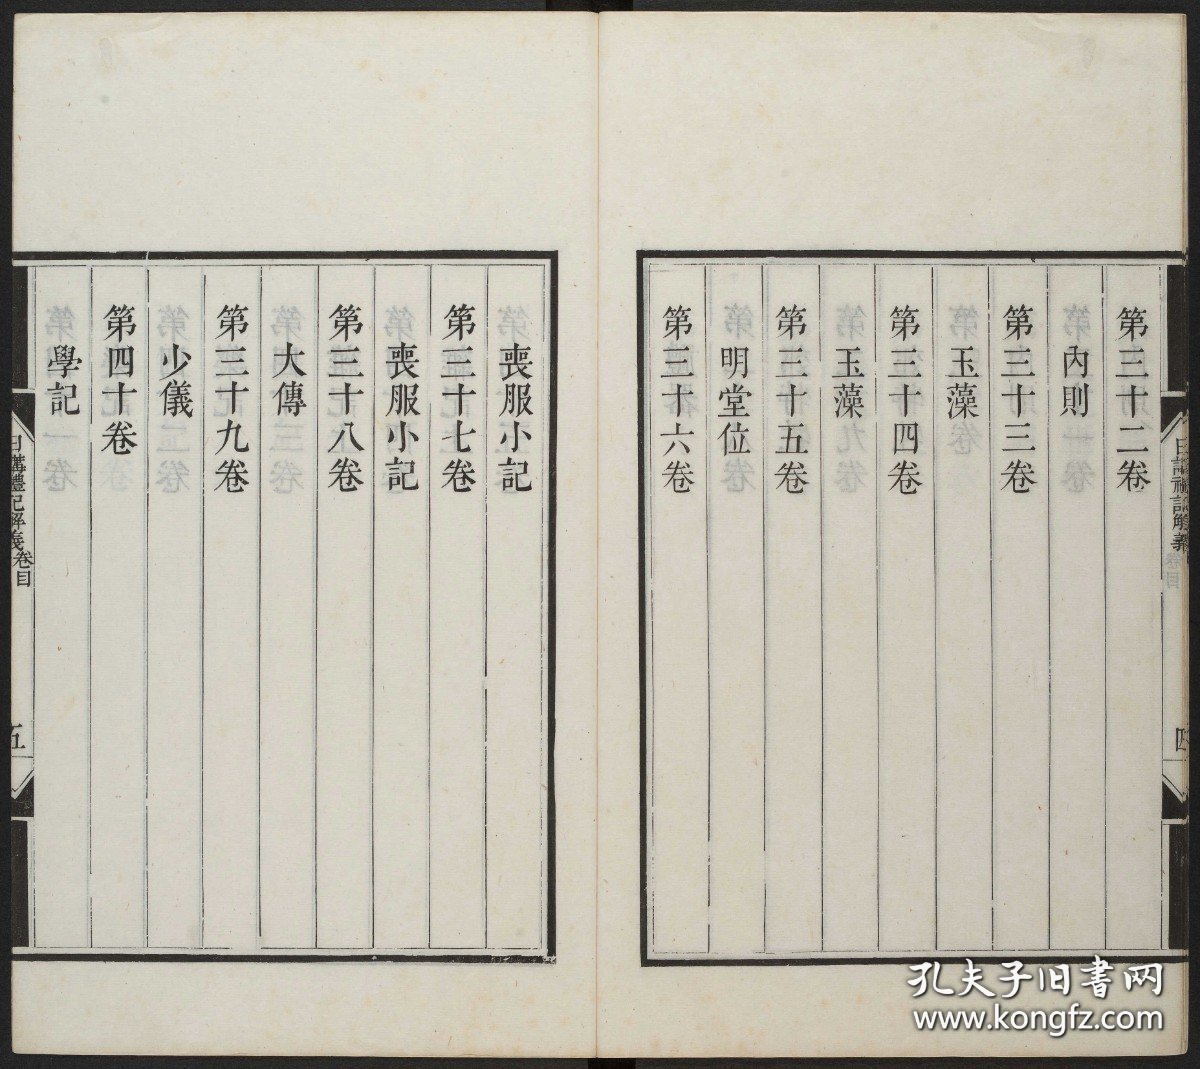 第三十二卷
內則
第三十三卷
玉藻
第三十四卷
玉藻
第三十五卷
明堂位
第三十六卷
喪服小記
第三十七卷
喪服小記
第三十八卷
大傳
第三十九卷
少儀
第四十卷
學記
日講禮記解義 卷目
五
日講禮記解義 卷目
四
孔夫子旧书网
www.kongfz.com